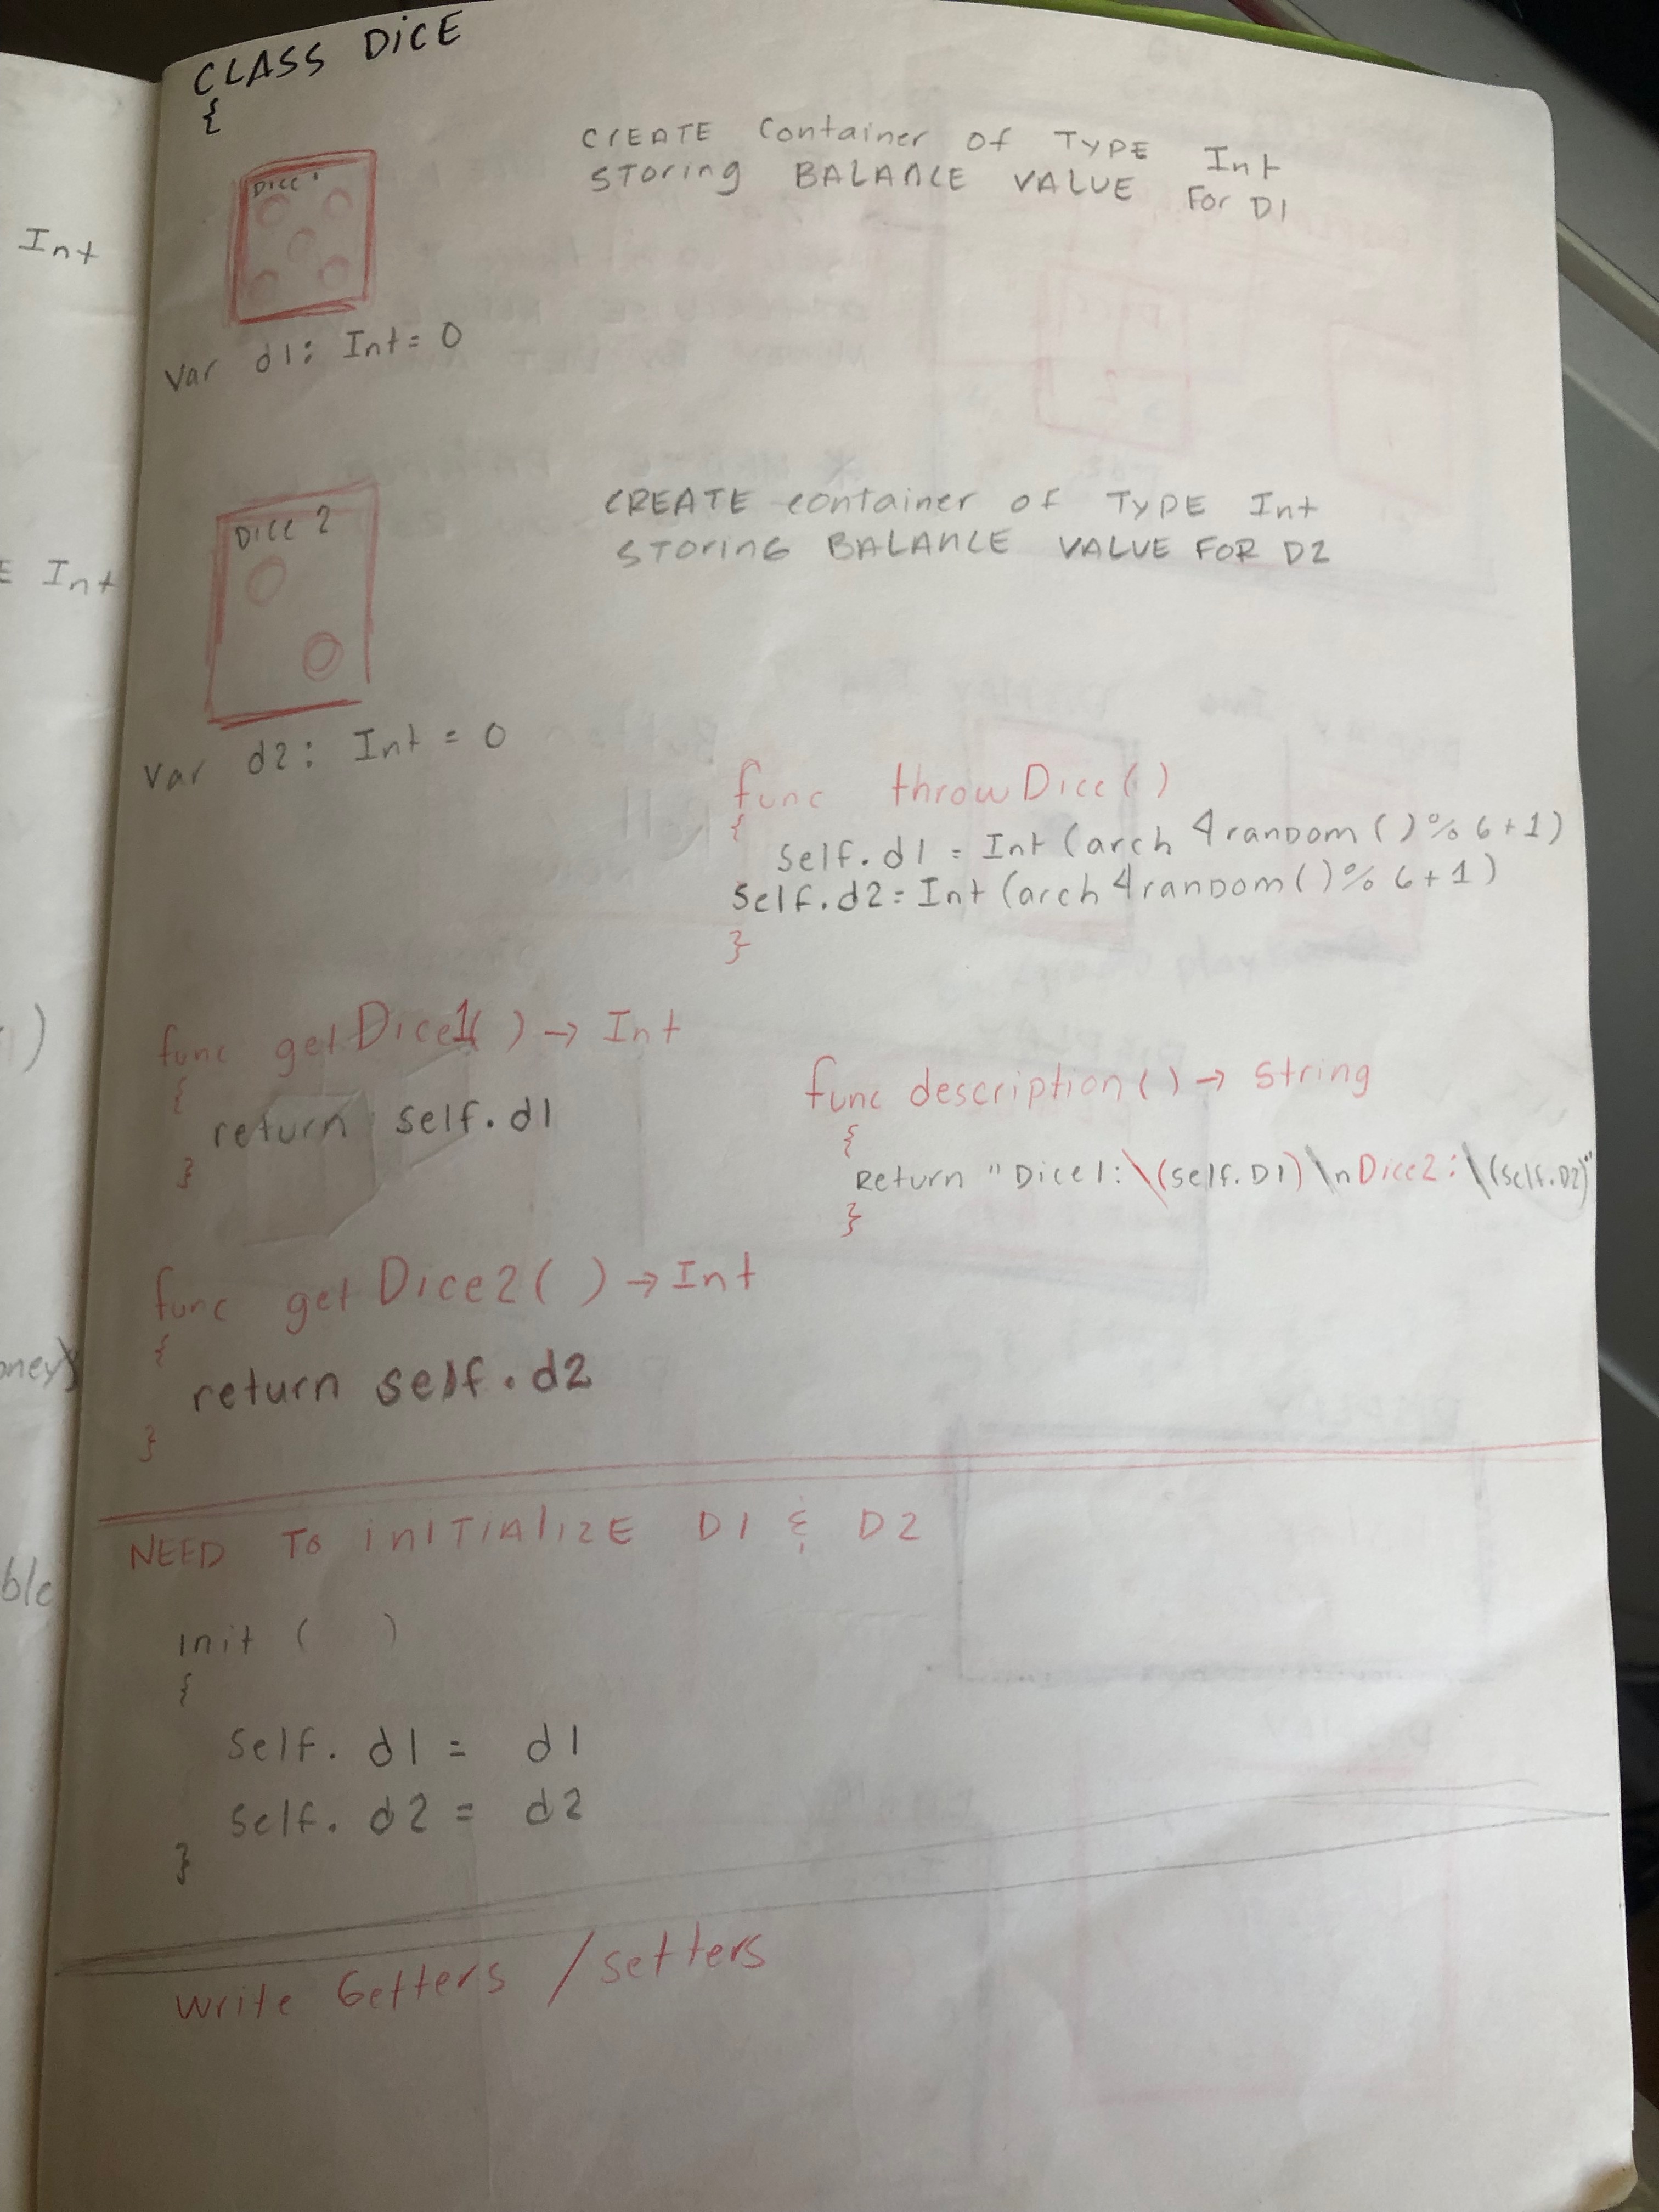 CLASS DiCE
{
CREATE Container of TYPE Int
STOring BALANCE VALUE For D1
Dice 1
Var d1: Int = 0
CREATE container of TYPE Int
STOrinG BALANCE VALUE FOR D2
Dice 2
Var d2: Int = 0
func throwDice()
{
self.d1 = Int (arch4random()%6+1)
self.d2 = Int (arch4random()%6+1)
}
func getDice1() → Int
{
return self.d1
}
func description() → String
{
Return "Dice1:\(self.D1)\nDice2:\(self.D2)"
}
func getDice2() → Int
{
return self.d2
}
NEED To initialize D1 & D2
init ( )
{
self. d1 = d1
self. d2 = d2
}
write Getters / setters
Int
E Int
)
oney)
ble